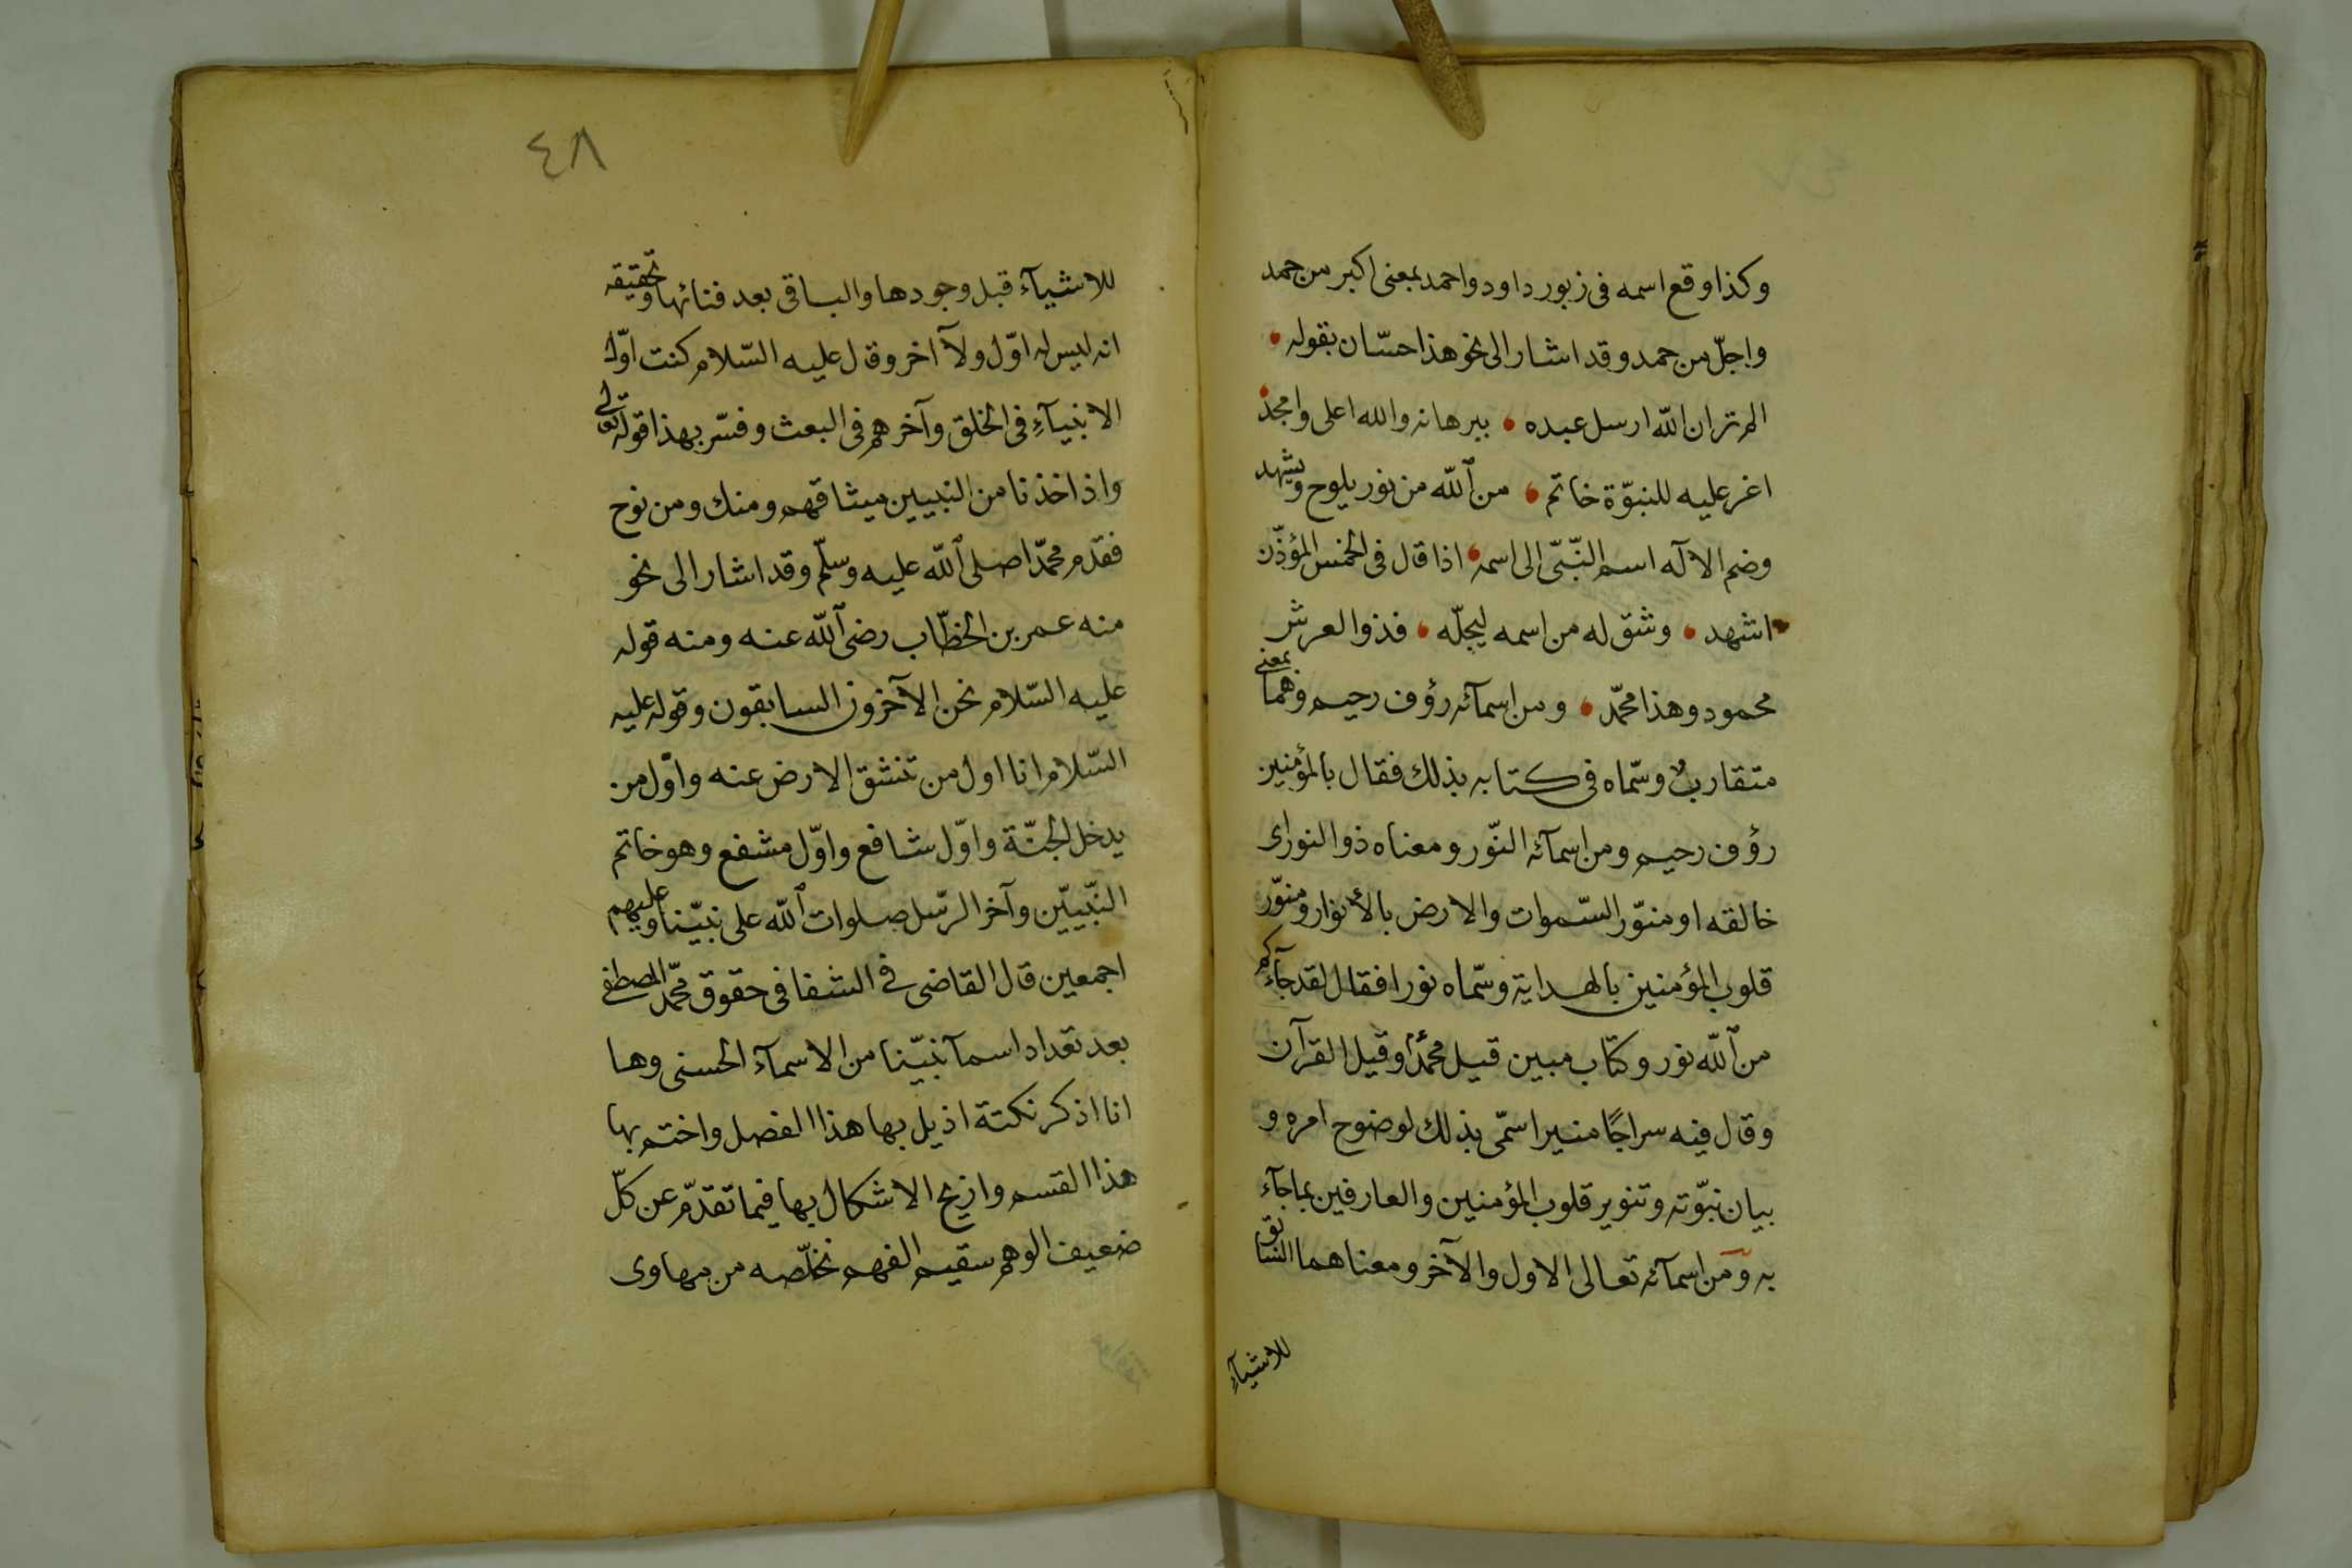 وكذا وقع اسمه فى زبور داود واحمد بمعنى اكبر من حمد
واجلّ من حمد وقد اشار الى نحو هذا حسّان بقوله
الم تر ان اللّه ارسل عبده ببرهانه والله اعلى وامجد
اغر عليه للنبوّة خاتم من اللّه من نور يلوح ويشهد
وضم الاله اسم النّبىّ الى اسمه اذا قال فى الخمس المؤذّن
اشهد وشق له من اسمه ليجلّه فذوا العرش
محمود وهذا محمّد ومن اسمآئه رؤف رحيم وهما بمعنى
متقارب وسّماه فى كتابه بذلك فقال بالمؤمنين
رؤف رحيم ومن اسمآئه النّور ومعناه ذو النور اى
خالقه او منوّر السّموات والارض بالأنوار ومنوّر
قلوب المؤمنين بالهداية وسّماه نورا فقال لقد جآءكم
من اللّه نور وكتاب مبين قيل محمّدًا وقيل القرآن
وقال فيه سراجًا منيرا سمّى بذلك لوضوح امره و
بيان نبوّته وتنوير قلوب المؤمنين والعارفين بما جآء
به ومن اسمآئه تعالى الاول والآخر ومعناهما السّابق
للاشيآء
٤٨
للاشيآء قبل وجودها والباقى بعد فنائها وتحقيقه
انه ليس له اوّل ولآ اخر وقال عليه السّلام كنت اوّل
الانبيآءِ فى الخلق وآخرهم فى البعث وفسّر بهذا قوله تعالى
واذ اخذنا من النبيين ميثاقهم ومنك ومن نوح
فقدم محمّدا صلى اللّه عليه وسلّم وقد اشار الى نحو
منه عمر بن الخطّاب رضى اللّه عنه ومنه قوله
عليه السّلام نحن الآخرون السابقون وقوله عليه
السّلام انا اول من تنشق الارض عنه واوّل من
يدخل الجنّة واوّل شافع واوّل مشفع وهو خاتم
النّبييّن وآخر الرّسل صلوات اللّه على نبيّنا وعليهم
اجمعين قال القاضى فى الشفا فى حقوق محمّد المصطفى
بعد تعداد اسمآ نبيّنا من الاسمآء الحسنى وها
انا اذكر نكتة اذيل بها هذا الفصل واختم بها
هذا القسم وازيح الاشكال بها فيما تقدّم عن كلّ
ضعيف الوهم سقيم الفهم نخلّصه من مهاوى